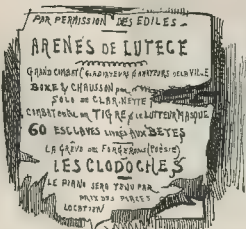 PAR PERMISSION DES EDILES
ARENES DE LUTECE
GRAND COMBAT GLADIATEURS AMATEURS DE LA VILLE
BOXE & CHAUSSON par
SOLO DE CLARINETTE
COMBAT entre un TIGRE & LE LUTTEUR MASQUÉ
60 ESCLAVES LIVRÉS AUX BETES
LA GREVE DES FORGERONS (POËSIE)
LES CLODOCHES
LE PIANO SERA TENU PAR
PRIX DES PLACES
LOCATION